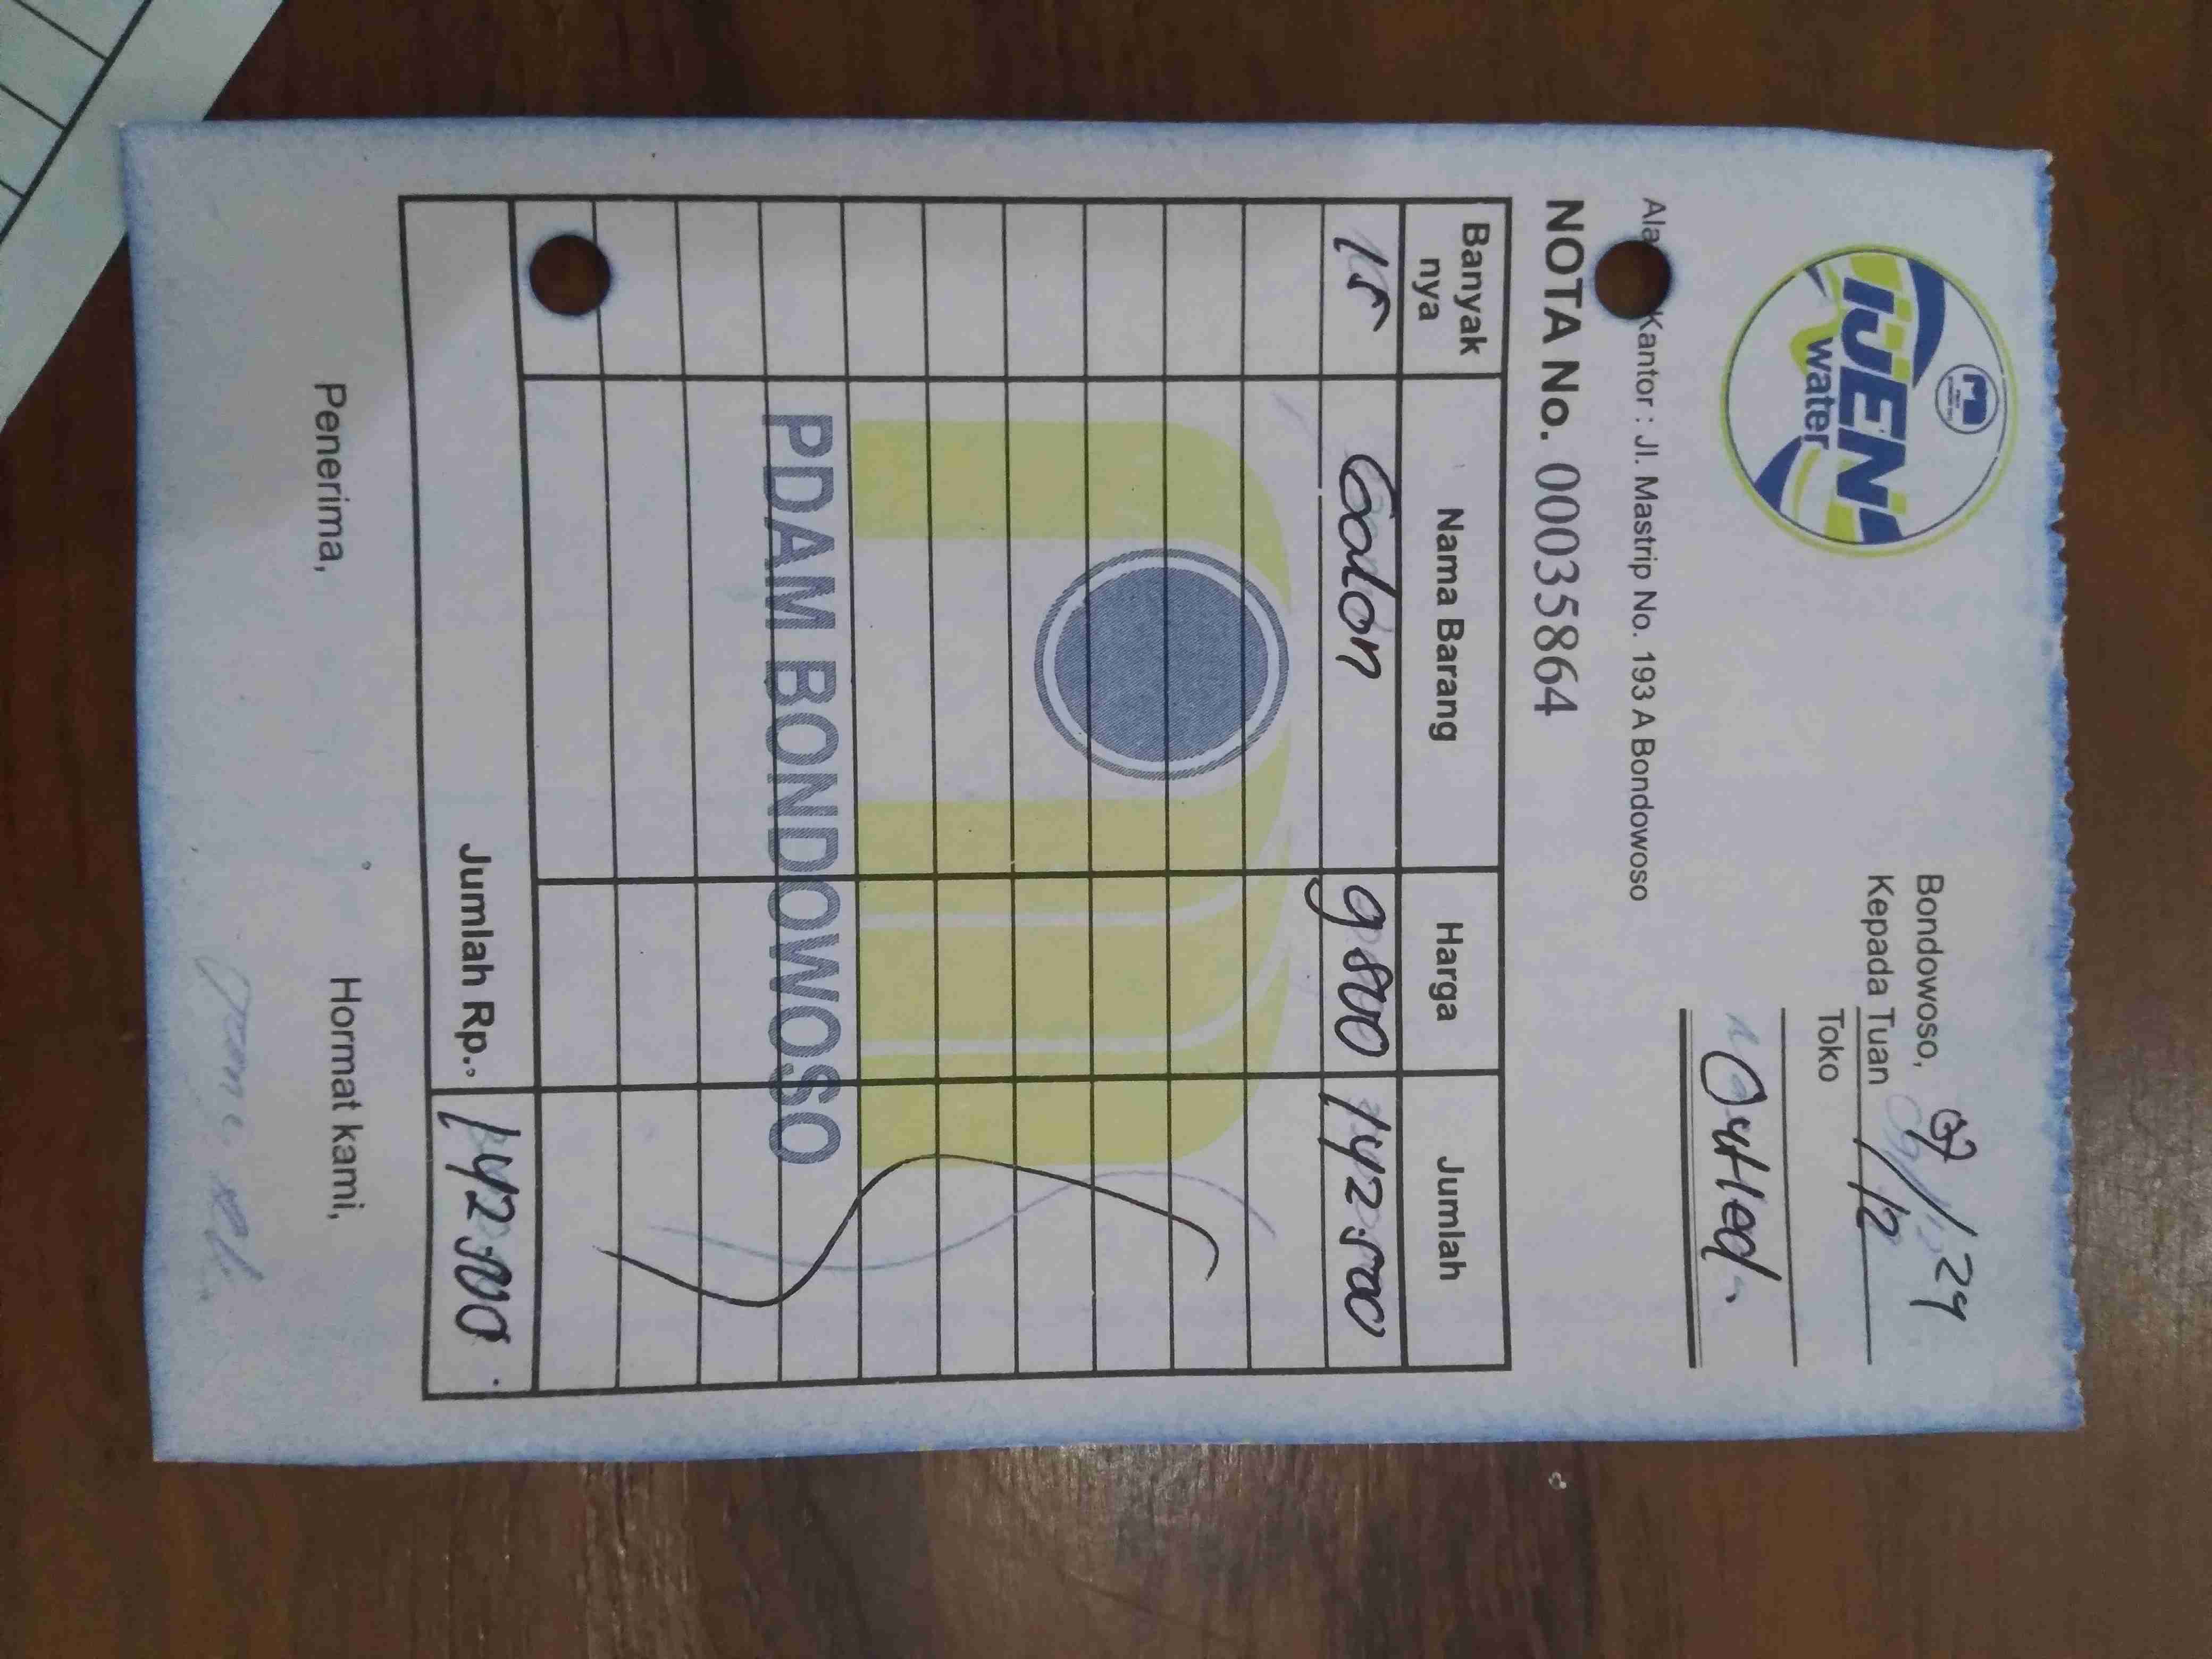 IJEN
water
Bondowoso, 07/12/24
Kepada Tuan
Toko
Kantor : Jl. Mastrip No. 193 A Bondowoso
NOTA No. 000035864
Banyak nya Nama Barang Harga Jumlah
15 Galon 9500 142.500
PDAM BONDOWOSO
Jumlah Rp. 142.500
Penerima, Hormat kami,